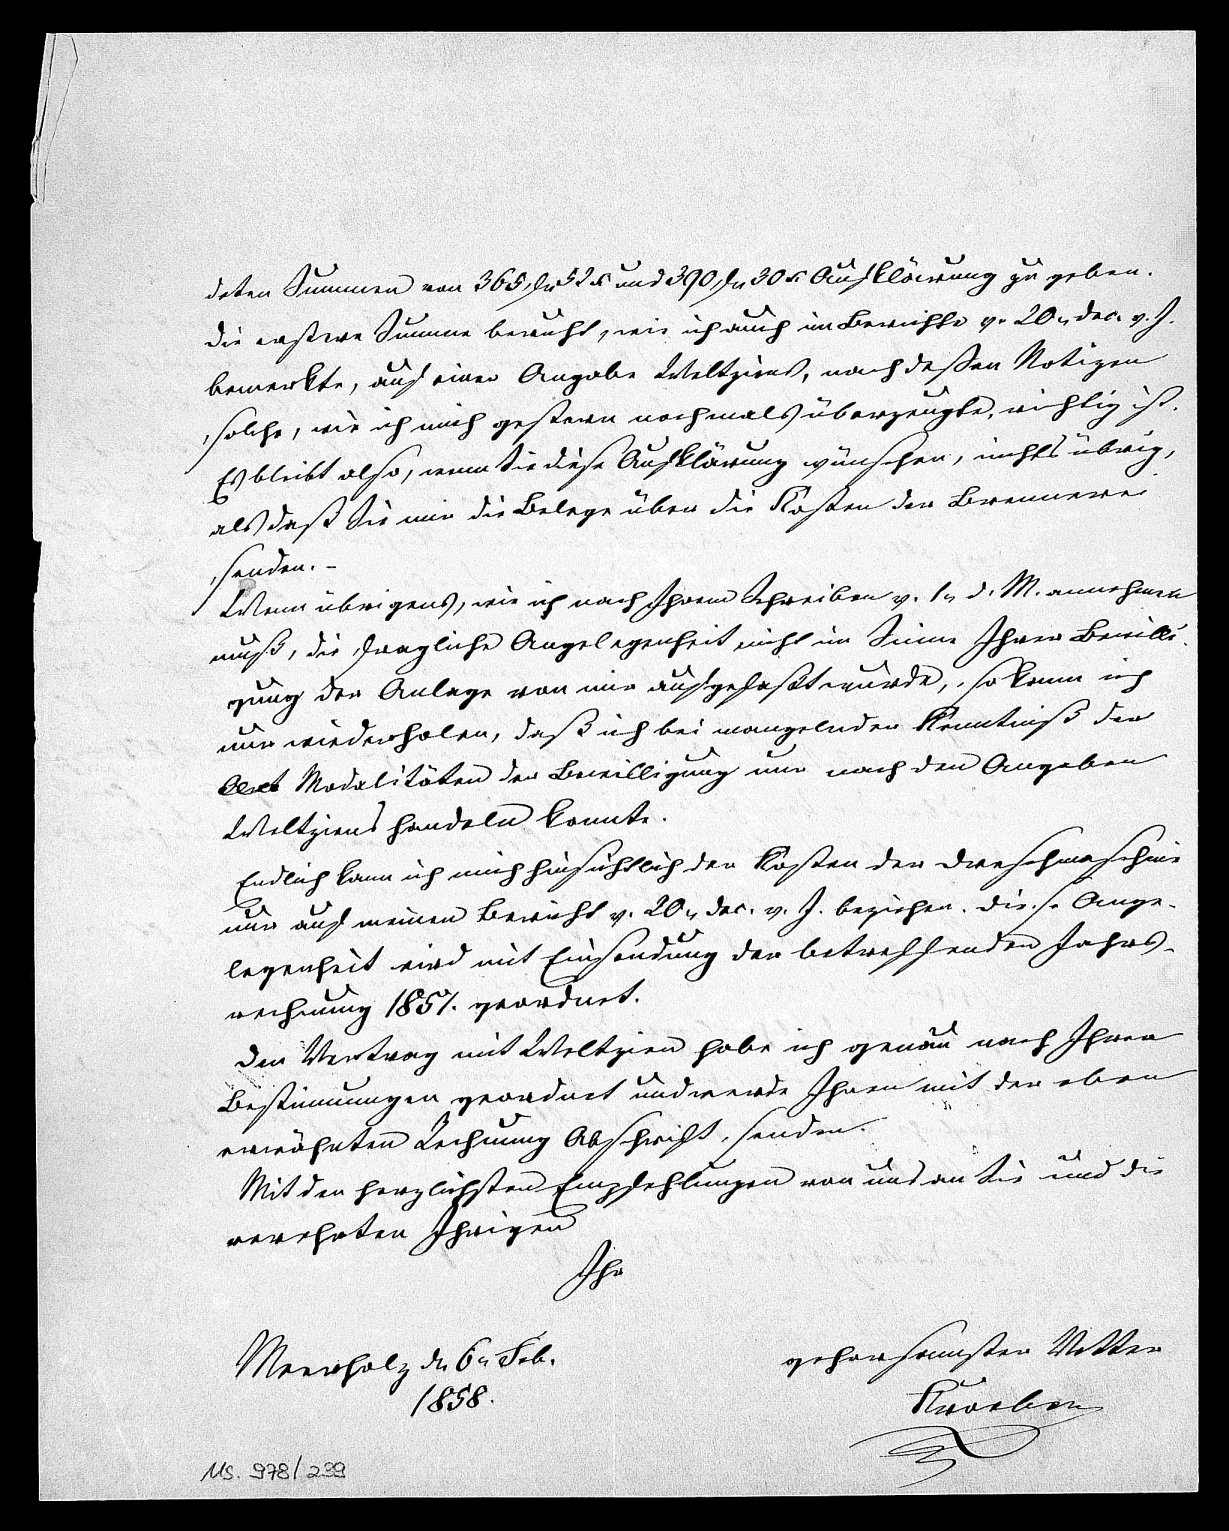 deten Summen von 365 fl 52 x und 390 fl 30 x Aufklärung zu geben.
Die erstere Summe beruht, wie ich auch im Berichte v. 20n Dec. v. J.
bemerkte, auf einer Angabe Weltziens, nach deßen Notizen
solche, wie ich mich gestern nochmals überzeugte, richtig ist.
Es bleibt also, wenn Sie diese Aufklärung wünschen, nichts übrig,
als daß Sie mir die Belege über die Kosten der Brennerei
senden. –
Wenn übrigens, wie ich nach Ihrem Schreiben v. 1n d. M. annehmen
muß, die fragliche Angelegenheit nicht im Sinne Ihrer Bewilli-
gung der Anlage von mir aufgefaßt wurde, so kann ich
nur wiederholen, daß ich bei mangelnder Kenntniß der
Modalitäten der Bewilligung nur nach den Angaben
Weltziens handeln konnte.
Endlich kann ich mich hinsichtlich der Kosten der Dreschmaschine
nur auf meinen Bericht v. 20n Dec. v. J. beziehen. Diese Ange-
legenheit wird mit Einsendung der betreffenden Jahrs-
rechnung 1857. geordnet.
Den Vertrag mit Weltzien habe ich genau nach Ihren
Bestimmungen geordnet und werde Ihnen mit der oben
erwähnten Rechnung Abschrift senden.
Mit den herzlichsten Empfehlungen von uns an Sie und die
verehrten Ihrigen
Ihr
Meerholz d. 6n Feb.
1858.
gehorsamster Vetter
Ms. 978/239